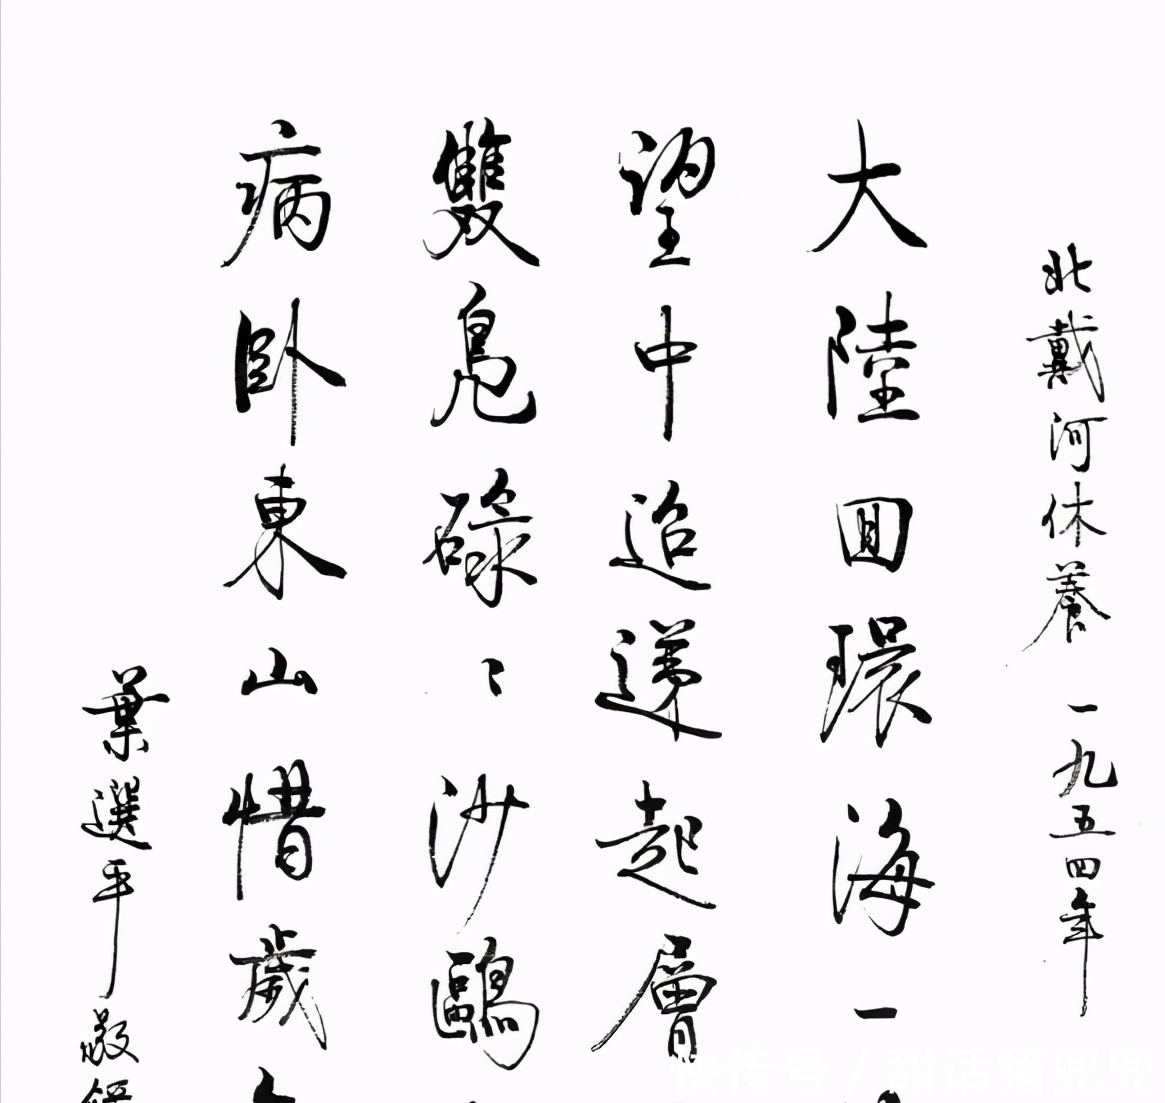 北戴河休養 一九五四年
大陸圓環海一
望中迢遞起層
雙鳧碌〻沙鷗
病臥東山惜歲
葉選平敬
快传号 / 甜话猪兜兜